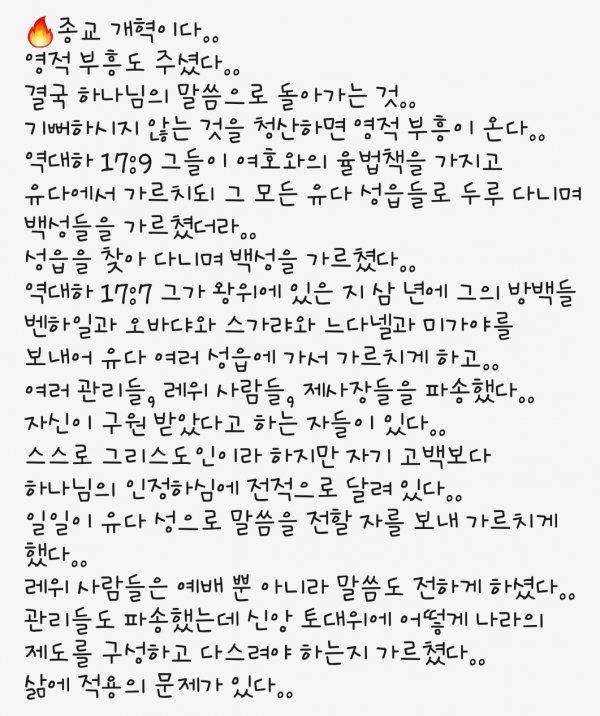 🔥종교 개혁이다..
영적 부흥도 주셨다..
결국 하나님의 말씀으로 돌아가는 것..
기뻐하시지 않는 것을 청산하면 영적 부흥이 온다..
역대하 17:9 그들이 여호와의 율법책을 가지고
유다에서 가르치되 그 모든 유다 성읍들로 두루 다니며
백성들을 가르쳤더라..
성읍을 찾아 다니며 백성을 가르쳤다..
역대하 17:7 그가 왕위에 있은 지 삼 년에 그의 방백들
벤하일과 오바댜와 스가랴와 느다넬과 미가야를
보내어 유다 여러 성읍에 가서 가르치게 하고..
여러 관리들, 레위 사람들, 제사장들을 파송했다..
자신이 구원 받았다고 하는 자들이 있다..
스스로 그리스도인이라 하지만 자기 고백보다
하나님의 인정하심에 전적으로 달려 있다..
일일이 유다 성으로 말씀을 전할 자를 보내 가르치게
했다..
레위 사람들은 예배 뿐 아니라 말씀도 전하게 하셨다..
관리들도 파송했는데 신앙 토대위에 어떻게 나라의
제도를 구성하고 다스려야 하는지 가르쳤다..
삶에 적용의 문제가 있다..